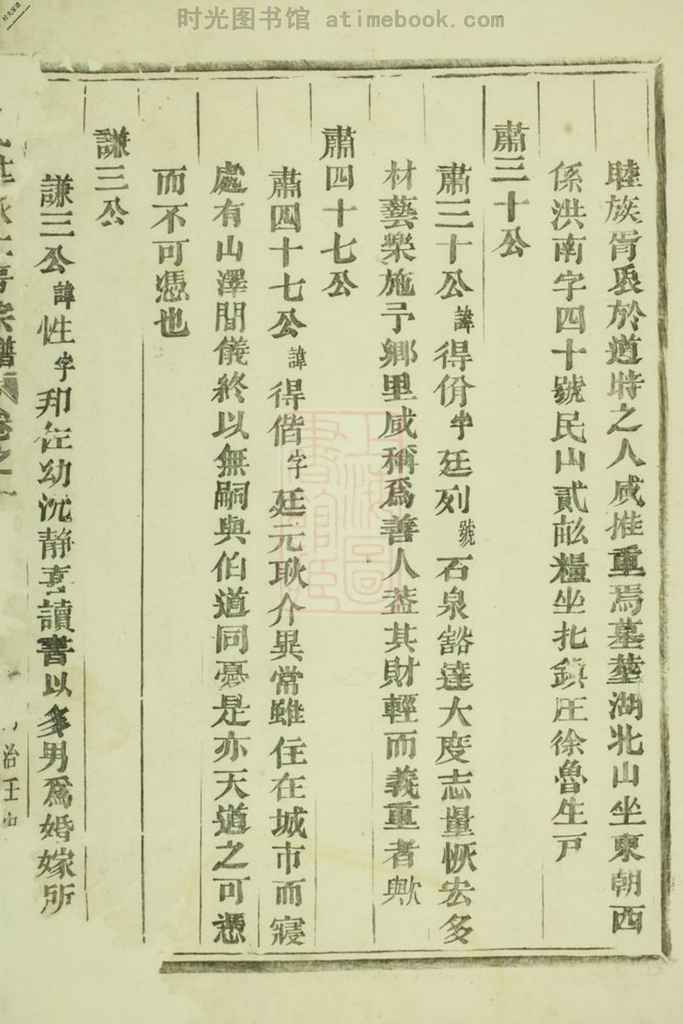 时光图书馆 atimebook.com
睦族胥表於道時之人咸推重焉墓塟湖北山坐東朝西
係洪南字四十號民山貳畝糧坐北鎮庄徐魯生戸
肅三十公
肅三十公諱得份字廷列號石泉豁達大度志量恢宏多
材藝樂施予鄉里咸稱爲善人葢其財輕而義重者歟
肅四十七公
肅四十七公諱得偕字廷元耿介異常雖住在城市而寢
處有山澤間儀終以無嗣與伯道同憂是亦天道之可憑
而不可憑也
謙三公
謙三公諱性字邦任幼沉静喜讀書以多男爲婚嫁所
宗譜 卷之一
治壬